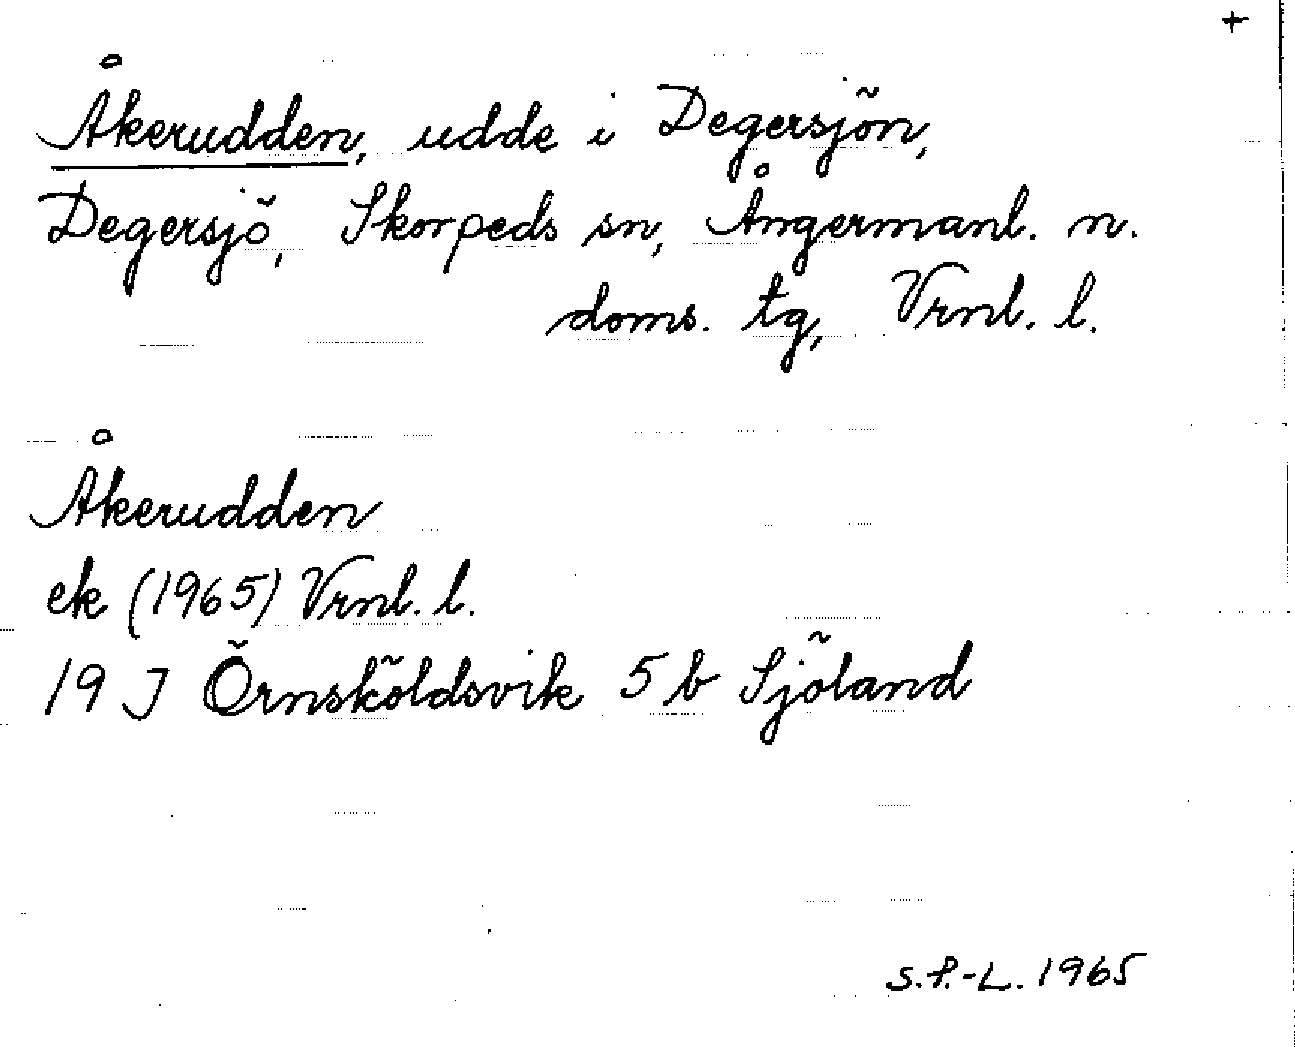 +
Åkerudden, udde i Degersjön,
Degersjö, Skorpeds sn, Ångermanl. n.
doms. tg, Vrnl. l.
Åkerudden
ek (1965) Vrnl. l.
19 J Örnsköldsvik 5 b Sjöland
S.P.-L. 1965